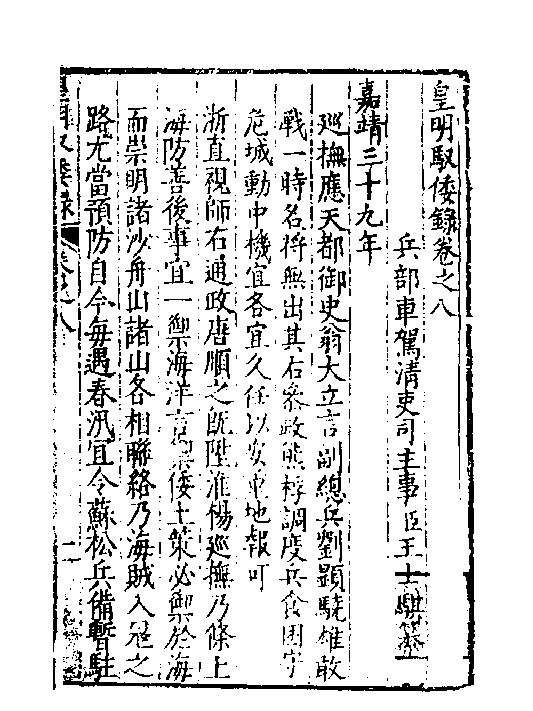 皇明馭倭錄卷之八
兵部車駕清吏司主事臣王士騏纂
嘉靖三十九年
巡撫應天都御史翁大立言副總兵劉顯驍雄敢
戰一時名將無出其右叅政熊桴調度兵食固守
危城動中機宜各宜久任以安重地報可
浙直視師右通政唐順之既陞淮楊巡撫乃條上
海防善後事宜一禦海洋言禦倭上策必禦於海
而崇明諸沙舟山諸山各相聯絡乃海賊入冦之
路尤當預防自今每遇春汛宜令蘇松兵備暫駐
卷之八
一